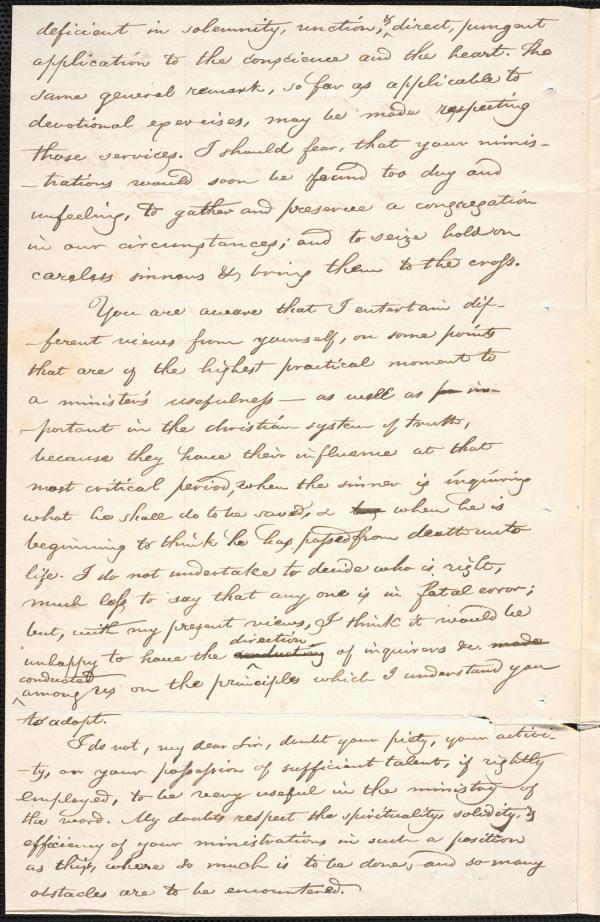 deficient in solemnity, unction, & direct, pungent
application to the conscience and the heart. The
same general remark, so far as applicable to
devotional exercises, may be made respecting
those services. I should fear, that your minis-
-trations would soon be found too dry and
unfeeling, to gather and preserve a congregation
in our circumstances; and to seize hold on
careless sinners &, bring them to the cross.
You are aware that I entertain dif-
-ferent views from yourself, on some points
that are of the highest practical moment to
a minister's usefulness — as well as im-
-portant in the christian system of truth,
because they have their influence at that
most critical period, when the sinner is inquiring
what he shall do to be saved, & when he is
beginning to think he has passed from death unto
life. I do not undertake to decide who is right,
much less to say that any one is in fatal error;
but, with my present views, I think it would be
direction
unhappy to have the conducting of inquirers &c. made
conducted
among us on the principles which I understand you
to adopt.
I do not, my dear Sir, doubt your piety, your activi-
-ty, or your possession of sufficient talent, if rightly
employed, to be very useful in the ministry of
the word. My doubts respect the spirituality, solidity, &
efficiency of your ministrations in such a position
as this, where so much is to be done, and so many
obstacles are to be encountered.